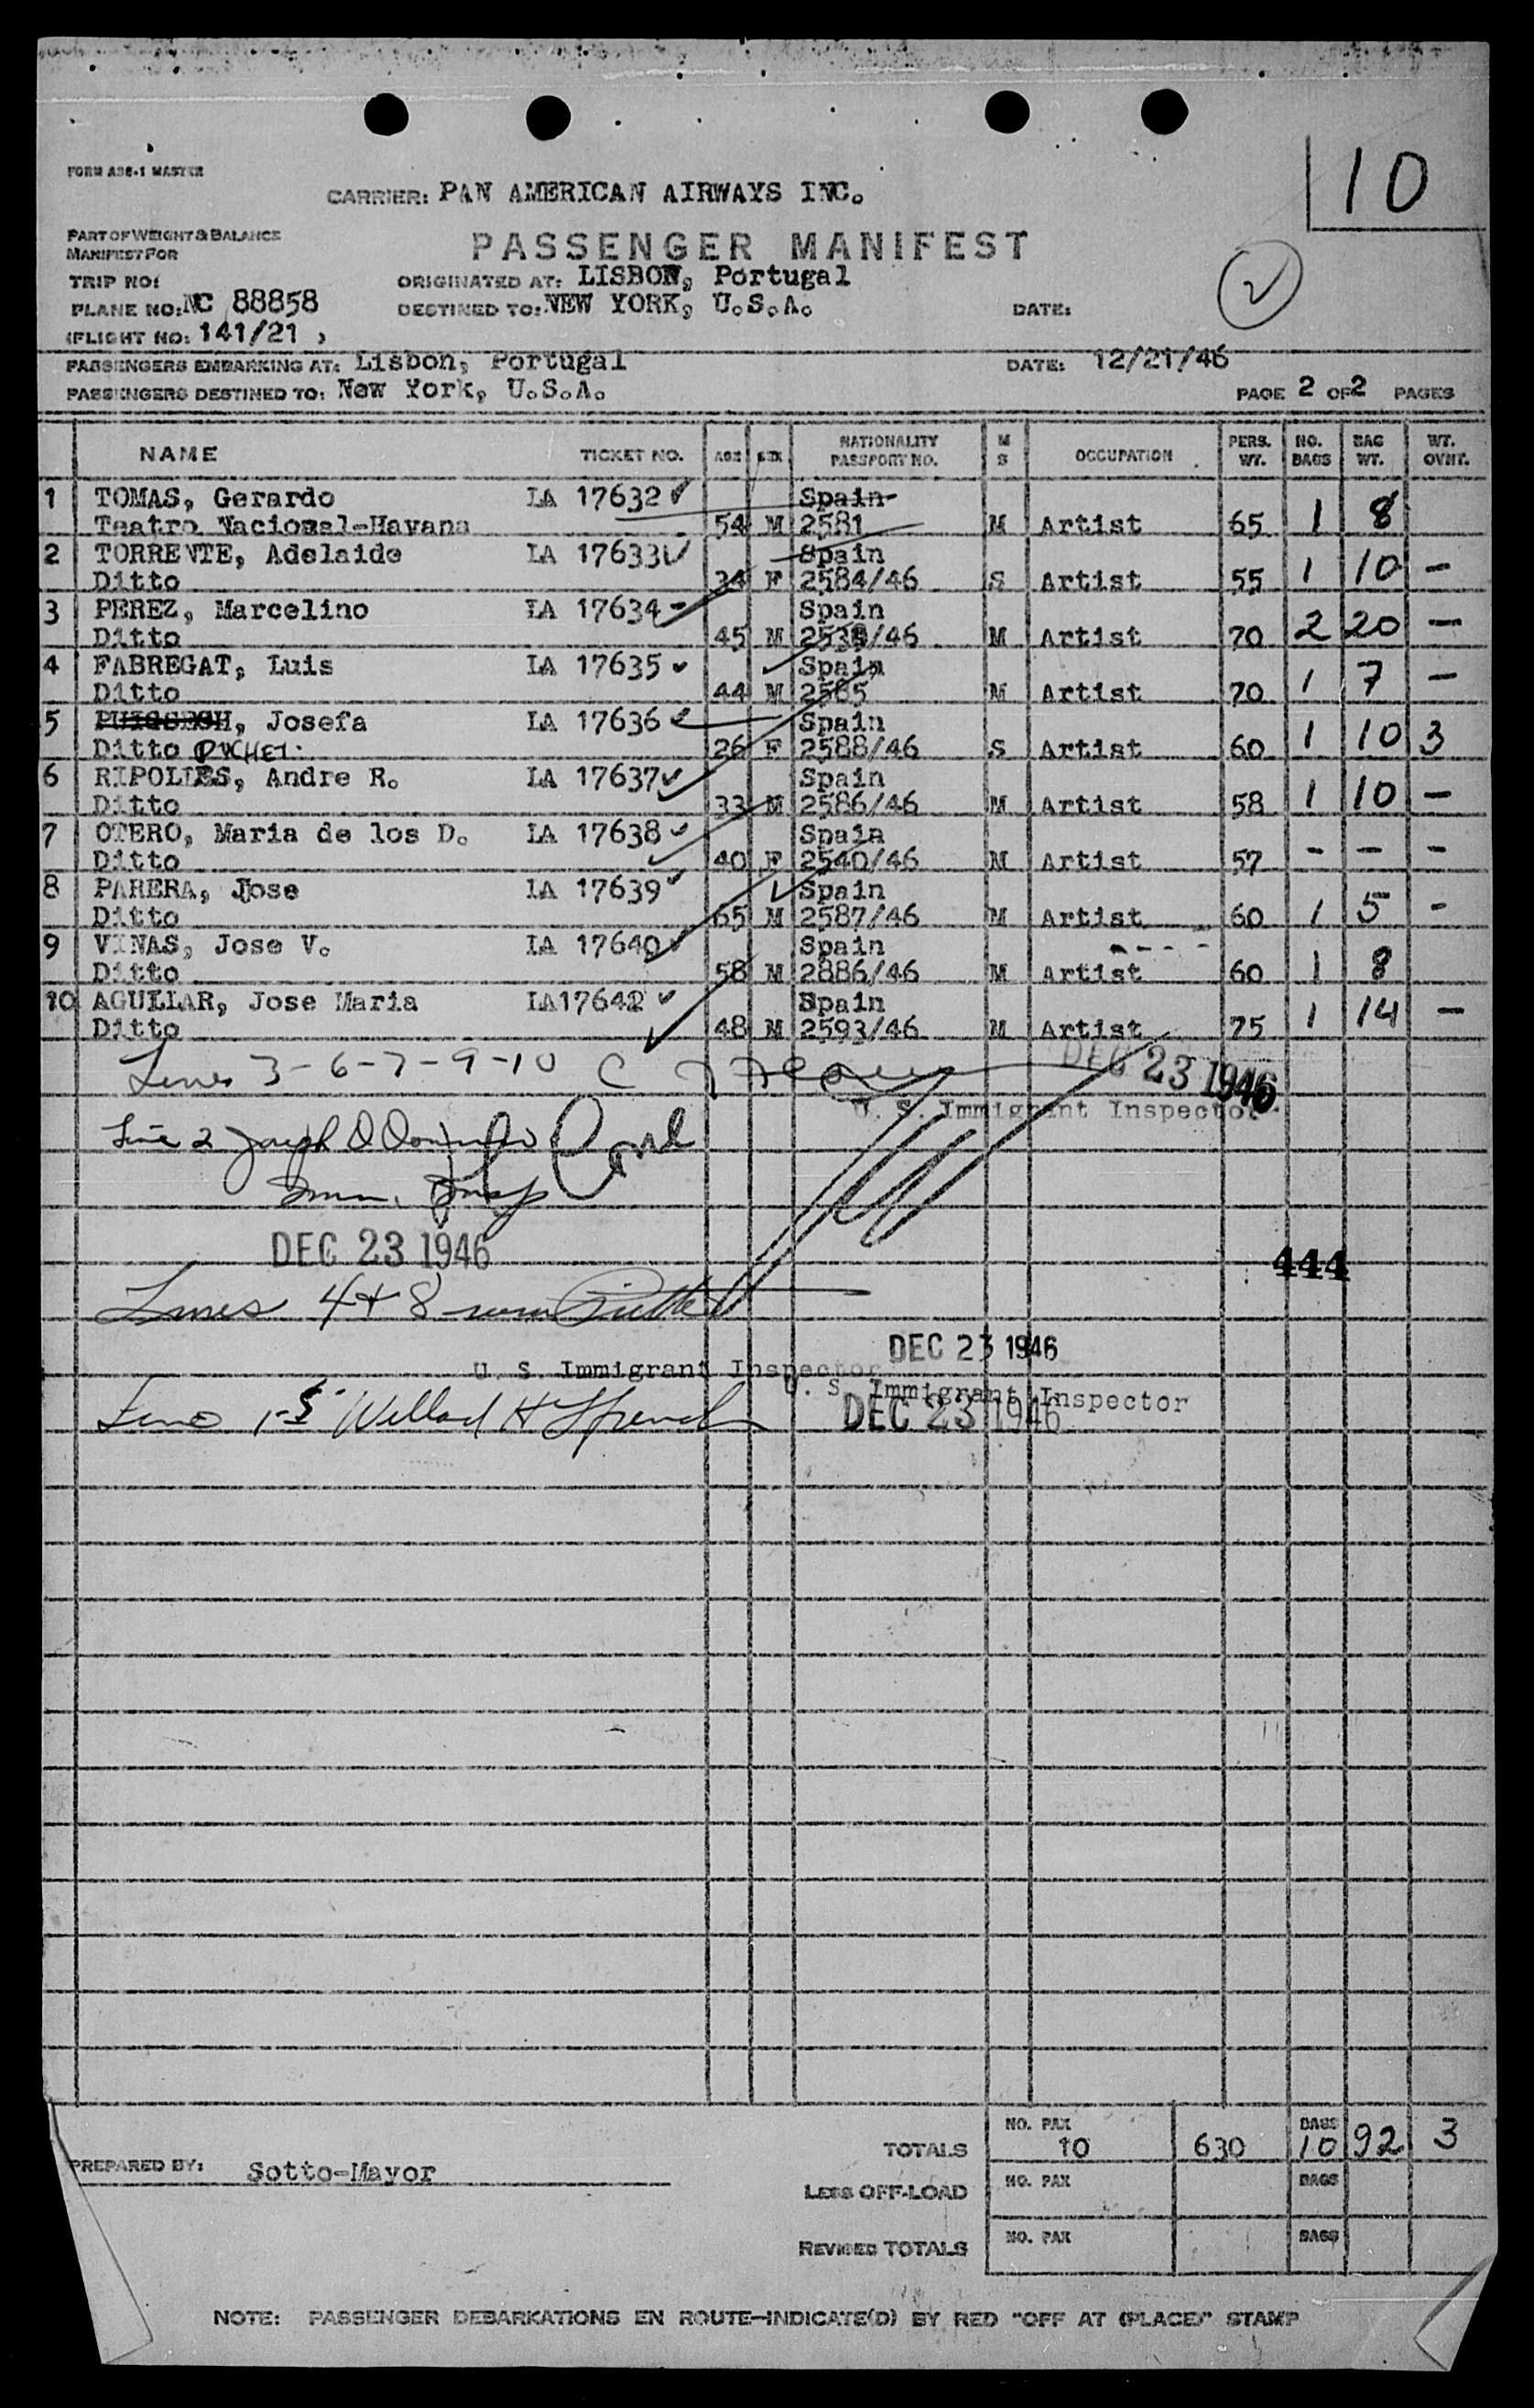 10
FORM A36-1 MASTER
CARRIER: PAN AMERICAN AIRWAYS INC.
PART OF WEIGHT & BALANCE
MANIFEST FOR
PASSENGER MANIFEST
TRIP NO:
ORIGINATED AT: LISBON, Portugal
PLANE NO: NC 88858
DESTINED TO: NEW YORK, U.S.A.
DATE:
(FLIGHT NO: 141/21 )
PASSENGERS EMBARKING AT: Lisbon, Portugal DATE: 12/21/46
PASSENGERS DESTINED TO: New York, U.S.A. PAGE 2 OF 2 PAGES
NAME TICKET NO. AGE SEX NATIONALITY PASSPORT NO. M S OCCUPATION PERS. WT. NO. BAGS BAG WT. WT. OVNT.
1 TOMAS, Gerardo LA 17632 Spain
Teatro Nacional-Havana 54 M 2581 M Artist 65 1 8
2 TORRENTE, Adelaide LA 17633 Spain
Ditto 34 F 2584/46 S Artist 55 1 10 -
3 PEREZ, Marcelino LA 17634 Spain
Ditto 45 M /46 M Artist 70 2 20 -
4 FABREGAT, Luis LA 17635 Spain
Ditto 44 M 2565 M Artist 70 1 7 -
5 , Josefa LA 17636 Spain
Ditto PUCHET. 26 F 2588/46 S Artist 60 1 10 3
6 RIPOLLES, Andre R. LA 17637 Spain
Ditto 33 M 2586/46 M Artist 58 1 10 -
7 OTERO, Maria de los D. LA 17638 Spain
Ditto 40 F 2540/46 M Artist 57 - - -
8 PARERA, Jose LA 17639 Spain
Ditto 65 M 2587/46 M Artist 60 1 5 -
9 VINAS, Jose V. LA 17640 Spain
Ditto 58 M 2886/46 M Artist 60 1 8
10 AGUILAR, Jose Maria LA17642 Spain
Ditto 48 M 2593/46 M Artist 75 1 14 -
Lines 3-6-7-9-10
DEC 23 1946
U. S. Immigrant Inspector
Line 2 Joseph
Imm. Insp
DEC 23 1946
444
Lines 4 + 8
DEC 23 1946
U. S. Immigrant Inspector
U. S. Immigrant Inspector
Line 1-5 Willard H French
DEC 23 1946
TOTALS NO. PAX 10 630 BAGS 10 92 3
PREPARED BY: Sotto-Mayor
LESS OFF-LOAD NO. PAX BAGS
REVISED TOTALS NO. PAX BAGS
NOTE: PASSENGER DEBARKATIONS EN ROUTE—INDICATE(D) BY RED "OFF AT (PLACE)" STAMP